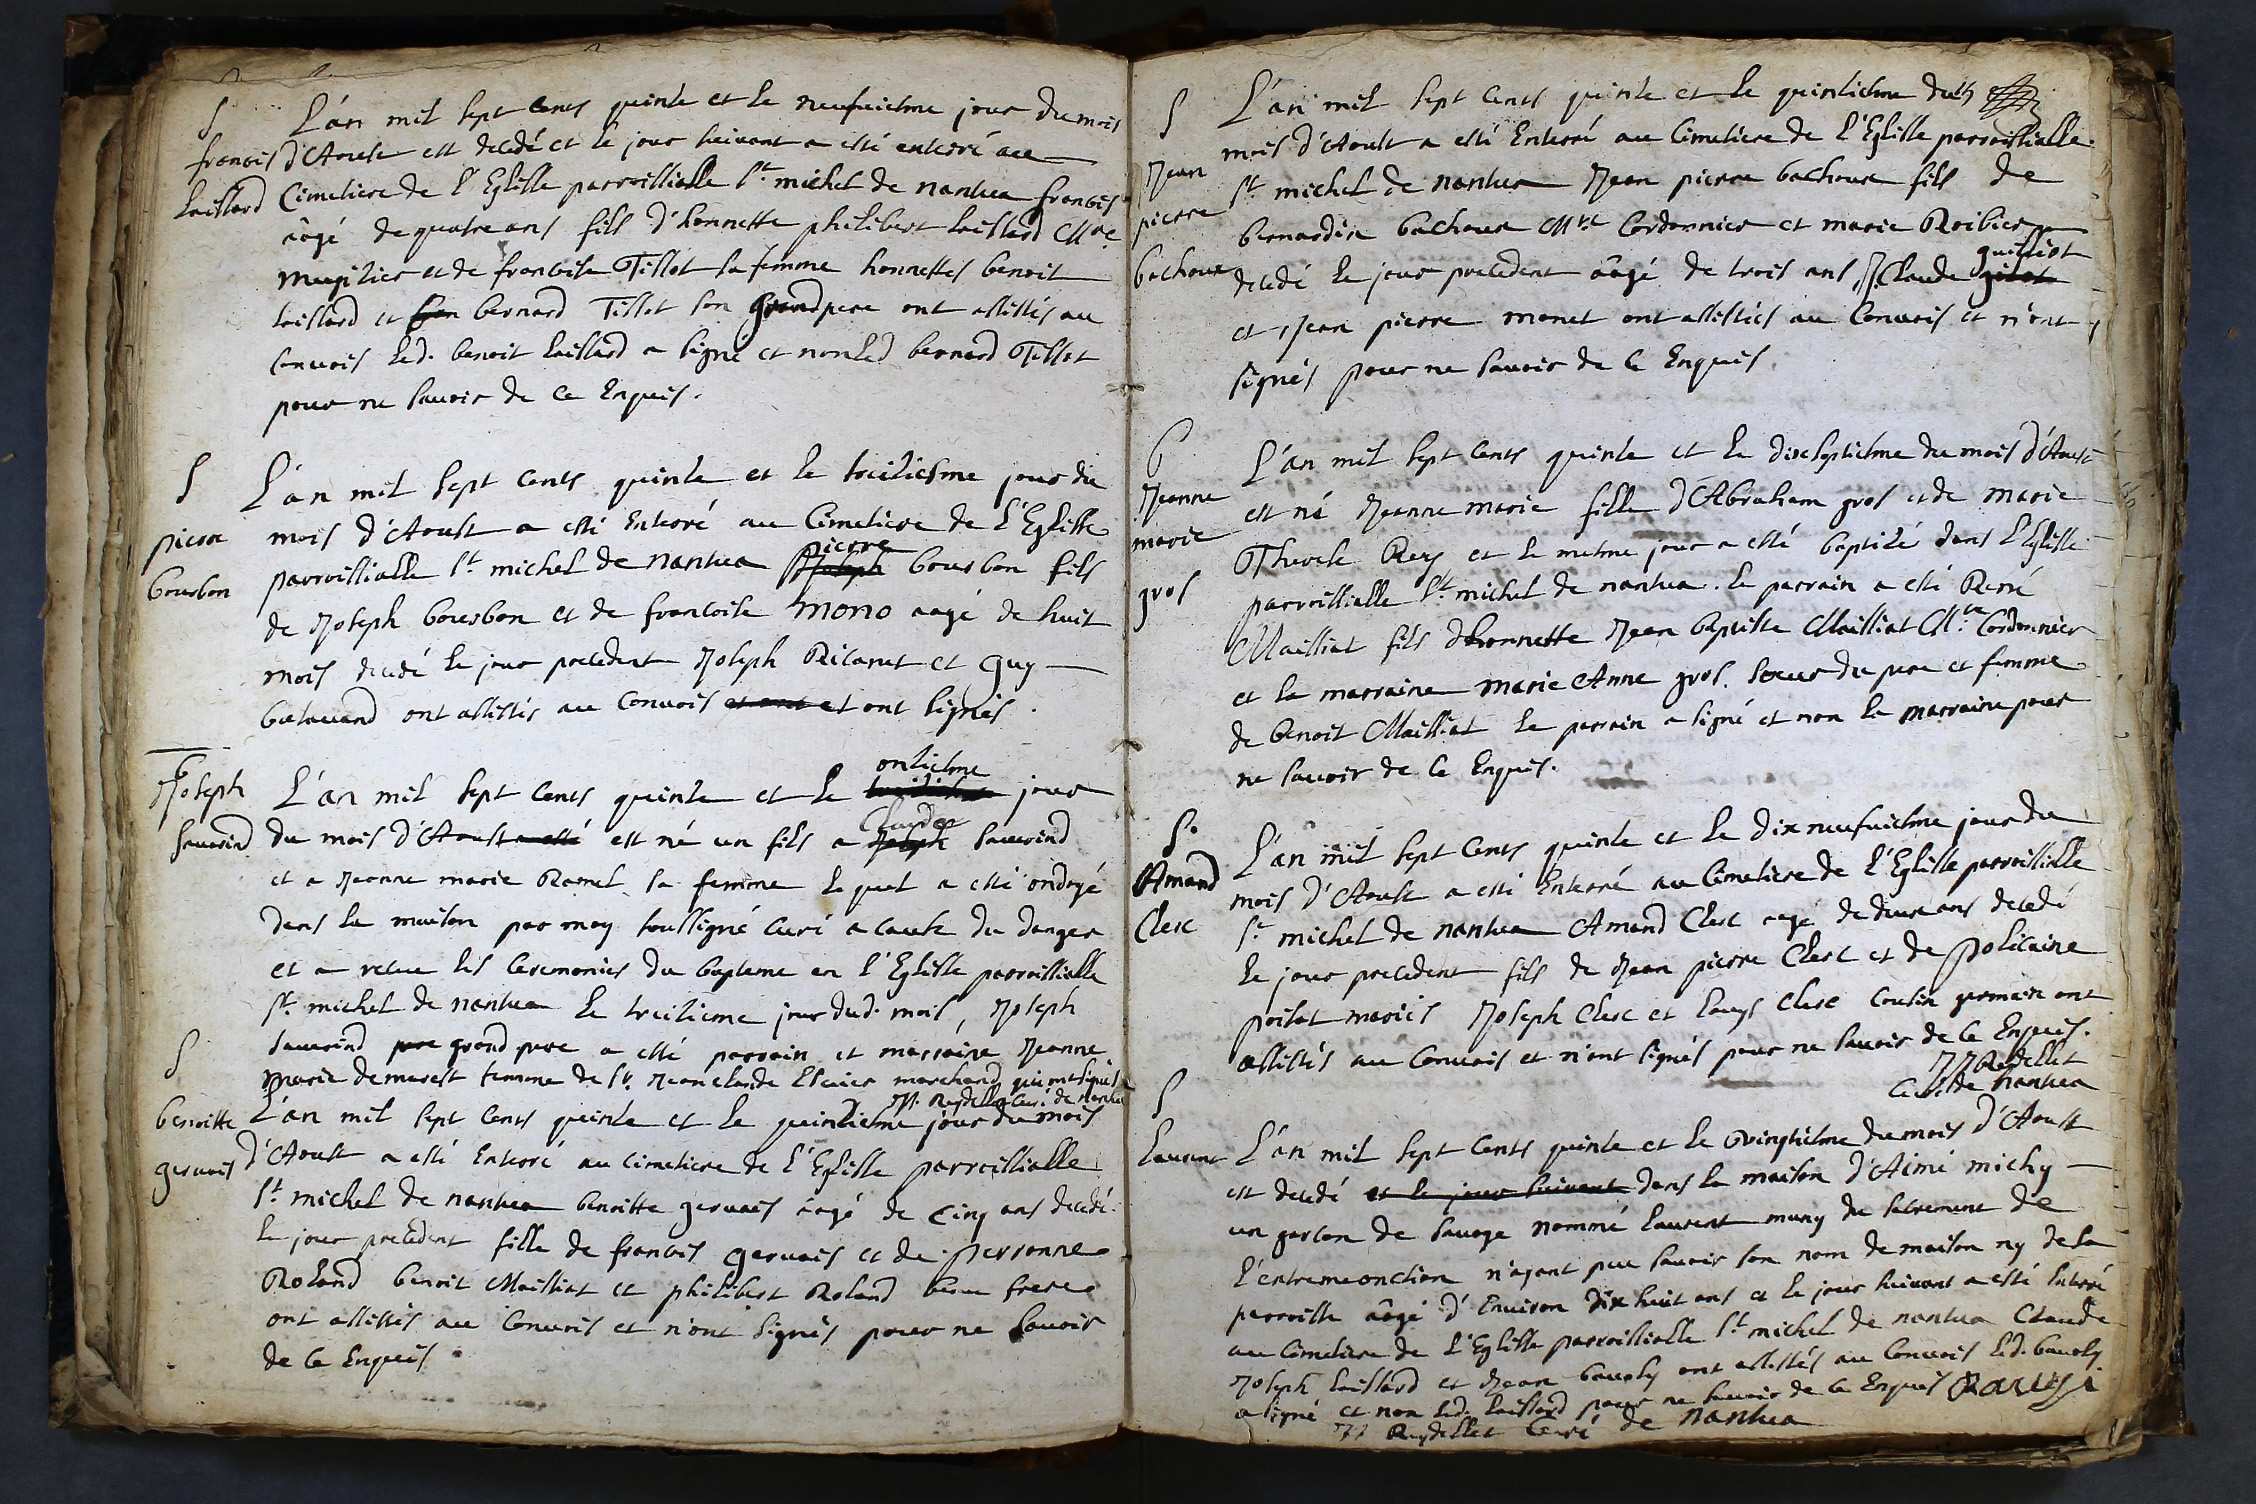 S
francois
Laissard
L'an mil sept cents quinze et le neufuiesme jour du mois
d'Aoust est decedé et le jour suivant a esté enterré au
Cimetiere de l'Eglisse parroissialle St michel de nantua francois
aagé de quatre ans fils d'honnette philibert Laissard Mre
munitier et de francoise Tissot sa femme honnettes benoit
Laissard et bernard Tissot son Grandpere ont assistés au
convois led. benoit Laissard a signé et non led bernard Tissot
pour ne savoir de ce Enquis.
S
pierre
bourbon
L'an mil sept cents quinze et le treiziesme jour du
mois d'Aoust a esté Enterré au Cimetiere de l'Eglisse
parroissialle St michel de nantua pierre bourbon fils
de Joseph bourbon et de francoise mono aagé de huit
mois decedé le jour precedent Joseph Ricanet et Guy
ont assistés au Convois et ont signés.
Joseph
Sauarind
L'an mil sept cents quinze et le onziesme jour
du mois d'Aoust est né un fils a Claude Sauarind
et a Jeanne marie Ramel sa femme lequel a esté ondoyé
dans la maison par moy soussigné Curé a cause du danger
et a receu les Ceremonies du bapteme en l'Eglisse parroissialle
St michel de nantua le treizieme jour dud. mois, Joseph
Sauarind grand pere a esté parrain et marraine Jeanne
marie demarest femme de Sr. Jean claude marchand qui ont signés
JJ. Reydellet Curé de nantua
S
benoitte
gervais
L'an mil sept cents quinze et le quinziesme jour du mois
d'Aoust a esté Enterré au cimetiere de l'Eglisse parroissialle
St michel de nantua benoitte gervais aagé de Cinq ans decedé
le jour precedent fille de francois gervais et de perronne
Roland benoit Mailliat et philibert Roland beau frere
ont assistés au Convois et n'ont signés pour ne savoir
de ce Enquis.
S
Jean
pierre
bachoux
L'an mil sept cents quinze et le quinziesme du
mois d'Aoust a esté Enterré au Cimetiere de l'Eglisse parroissialle
St michel de nantua Jean pierre bachoux fils de
bernardin bachoux Mre Cordonnier et marie Roibier
decedé le jour precedent aagé de trois ans, Claude guilliot
et Jean pierre monet ont assistés au Convois et n'ont
signés pour ne savoir de ce Enquis.
B
Jeanne
marie
gros
L'an mil sept cents quinze et le dixseptiesme du mois d'Aoust
est né Jeanne marie fille d'Abraham gros et de marie
Therese Rey et le mesme jour a esté baptizé dans l'Eglisse
parroissialle St michel de nantua. le parrain a esté René
Mailliat fils d'honnette Jean baptiste Mailliat Mre Cordonnier
et la marraine marie Anne gros soeur du pere et femme
de benoit Mailliat le parrain a signé et non la marraine pour
ne savoir de ce Enquis.
S.
Amand
Clerc
L'an mil sept Cents quinze et le dixneufuiesme jour du
mois d'Aoust a esté Enterré au Cimetiere de l'Eglisse parroissialle
St michel de nantua Amand Clerc aagé de deux ans decedé
le jour precedent fils de Jean pierre Clerc et de policaine
poisat mariés Joseph Clerc et Louys Clerc Cousin germain ont
assistés au Convois et n'ont signés pour ne savoir de ce Enquis.
JJ Reydellet
Curé de nantua
S
Laurent
L'an mil sept Cents quinze et le vingtiesme du mois d'Aoust
est decedé et le jour suivant dans la maison d'Aimé michy
un garson de savoye nommé Laurent muny du sacrement de
l'extremeonction n'ayant peu savoir son nom de maison ny de sa
parroisse aagé d'Environ dix huit ans et le jour suivant a esté Enterré
au Cimetiere de l'Eglisse parroissialle St michel de nantua Claude
Joseph Laissard et Jean bavoly ont assistés au Convois led. bavoly
a signé et non led. Laissard pour ne savoir de ce Enquis
JJ Reydellet Curé de nantua